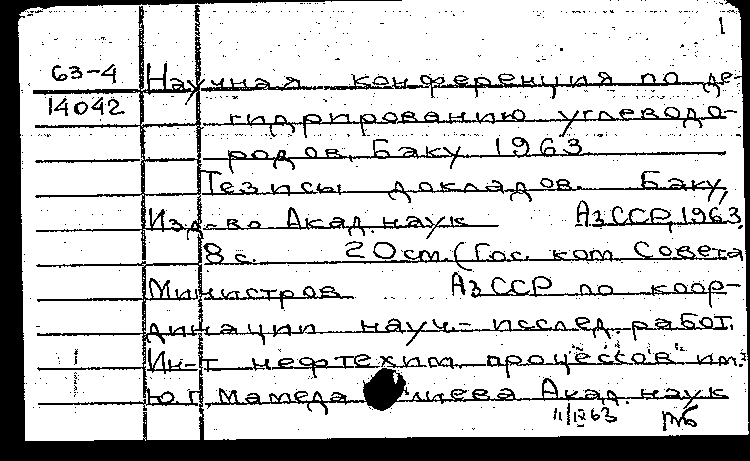 1
63-4 Научная конференция по де-
14042 гидрированию углеводо-
родов. Баку 1963
Тезисы докладов. Баку,
Изд-во Акад. наук АзССР, 1963.
8 с. 20 см. (Гос. ком. Совета
Министров АзССР по коор-
динации науч.-исслед. работ.
Ин-т нефтехим. процессов им.
Ю.Г. Мамеда лиева Акад. наук
11/IX 63